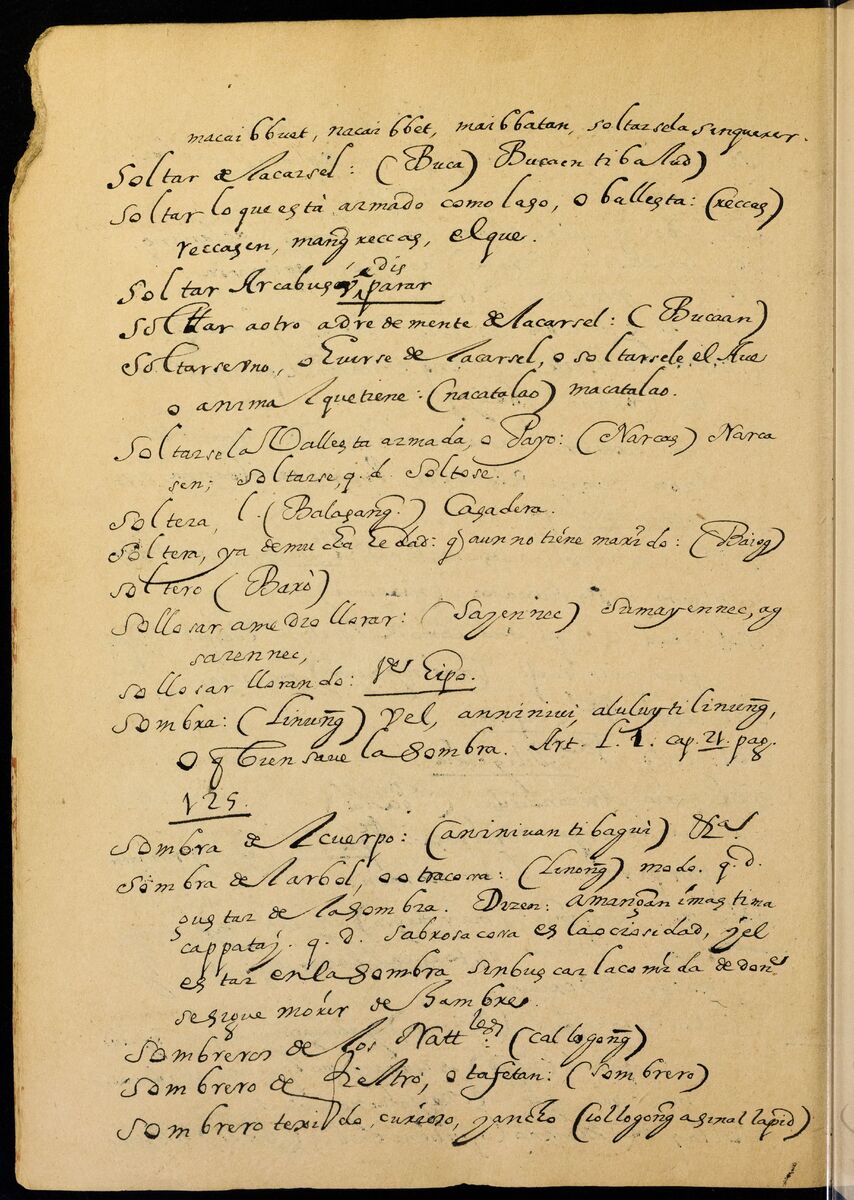 macaibbuet, nacaibbet, maibbatan, soltarsela sinquerer.
Soltar delacarsel: (Buca) Bucaen tibalud)
Soltar lo que està armado como laso, o ballesta: (reccas)
reccasen, mang̃reccas, elque.
Soltar Arcabus, v, disparar
Solttar aotro adredemente delacarsel: (Bucaan)
Soltarse vno, o huirse de lacarsel, o soltarsele el Aue
o animal quetiene: (nacatalao) macatalao.
Soltarsela Vallesta armada, o Payo: (Narcas) Narca
sen; soltarse, q. d. soltose.
Soltera, l. (Balasang̃.) Casadera.
Soltera, ya demucha hedad: q̃ aun no tiéne marido: (Baiog)
Soltero (Barò)
Sollosar amedio llorar: (Sayennec) Sumayennec, ag
saiennec,
Sollosar llorando: Vdes hipo.
Sombra: (Linung̃) yel, anniniui, aluluytilinung̃,
o q̃ bien save la sombra. Art. L. 1. cap. 21. pag.
125.
Sombra de Acuerpo: (aninivantibagui) &a
Sombra de Larbol, o otracosa: (Linong̃) modo. q. d.
gustar de lasombra. Dizen: amang̃an imastima
cappatay. q. d. sabrosacosa es laociosidad, yel
estar en la sombra sinbuscar lacomida de donde
sesigue morir de hambre.
Sombreros de los Nattles: (callogong̃)
Sombrero de fieltro, o tafetan: (sombrero)
Sombrero texido, curioso, yancho (collogong̃ asinallapid)